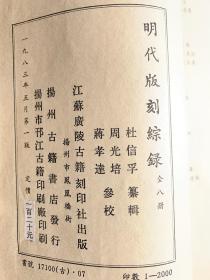 明代版刻綜録
全八册
杜信孚 纂輯
周光培
蔣孝達 參校
江蘇廣陵古籍刻印社出版
揚州市鳳凰橋街
揚州古籍書店發行
揚州市邗江古籍印刷廠印刷
一九八三年五月第一版
定價 一百二十元
書號 17100(古)·07
印數 1—2000